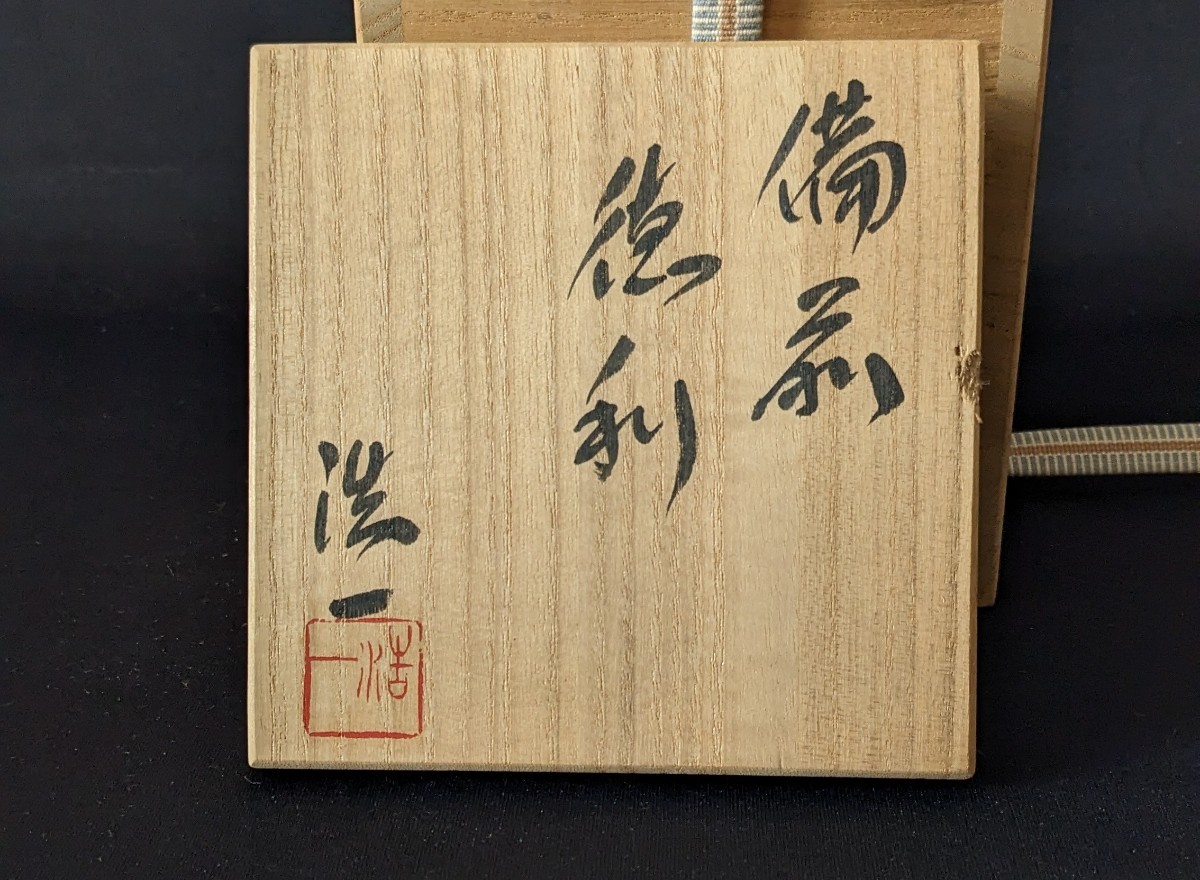 備前
徳利
浩一
浩一